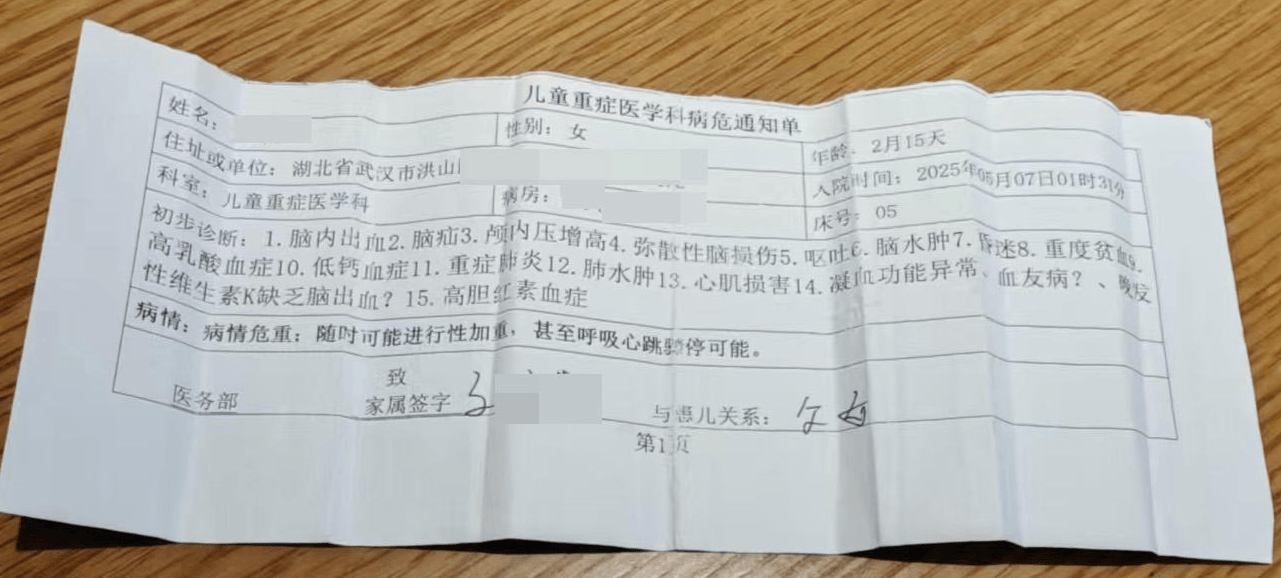 儿童重症医学科病危通知单
姓名: 性别: 女 年龄: 2月15天
住址或单位: 湖北省武汉市洪山 入院时间: 2025年05月07日01时31分
科室: 儿童重症医学科 病房: 床号: 05
初步诊断: 1.脑内出血2.脑疝3.颅内压增高4.弥散性脑损伤5.呕吐6.脑水肿7.昏迷8.重度贫血9.
高乳酸血症10.低钙血症11.重症肺炎12.肺水肿13.心肌损害14.凝血功能异常、血友病?、晚发
性维生素K缺乏脑出血?15.高胆红素血症
病情: 病情危重; 随时可能进行性加重, 甚至呼吸心跳骤停可能。
致
医务部 家属签字 与患儿关系: 父女
第1页